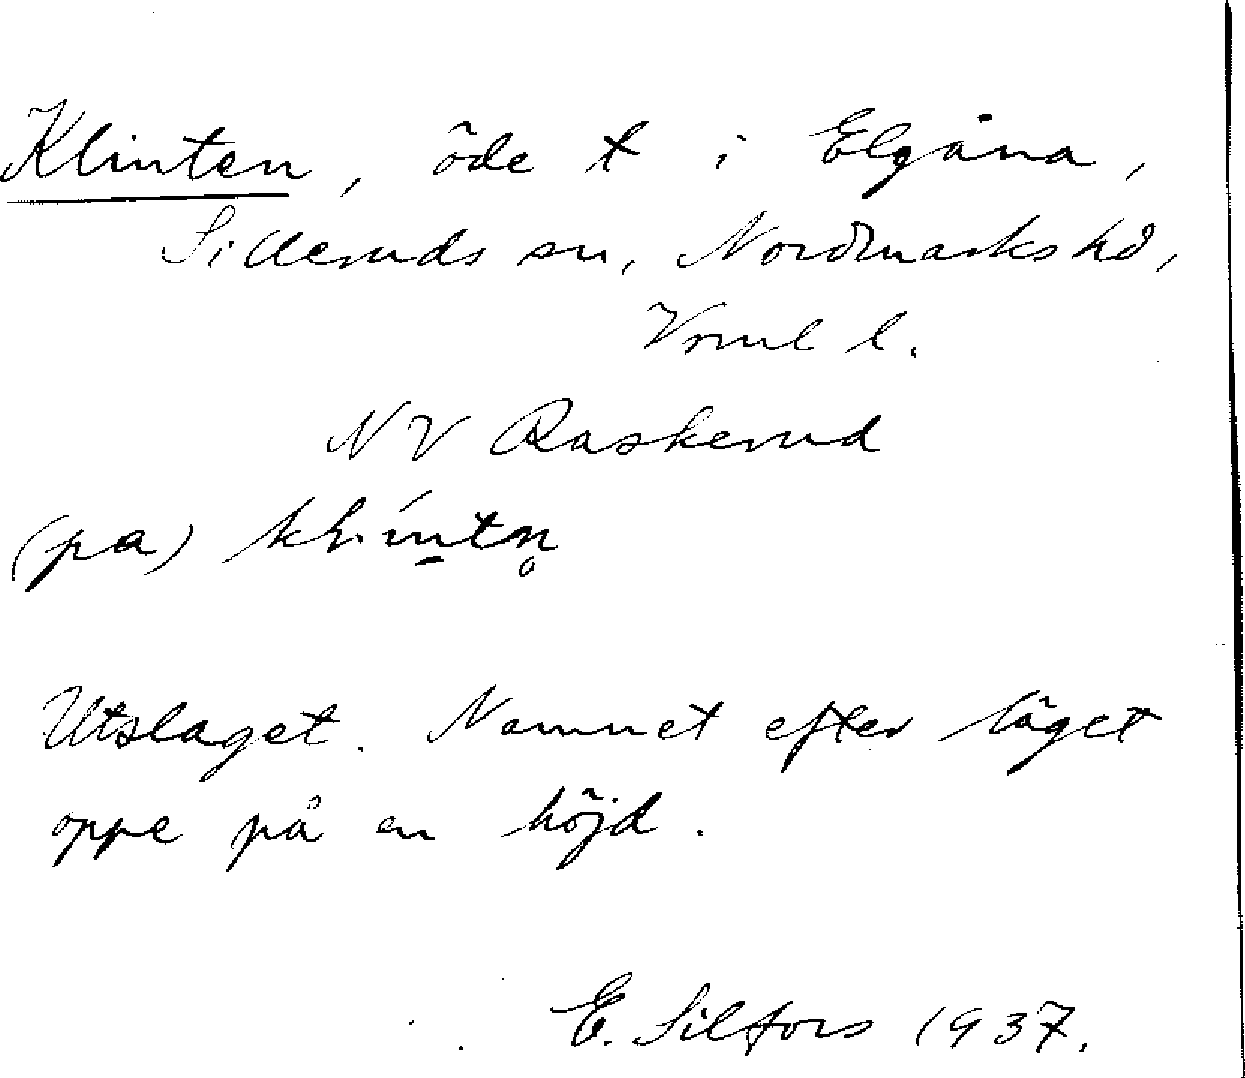 Klinten, öde t i Elgåna,
Silleruds sn, Nordmarks hd,
Vrml l.
NV Raskerud
(pa)
Utslaget. Namnet efter läget
oppe på en höjd.
E. Silfors 1937.